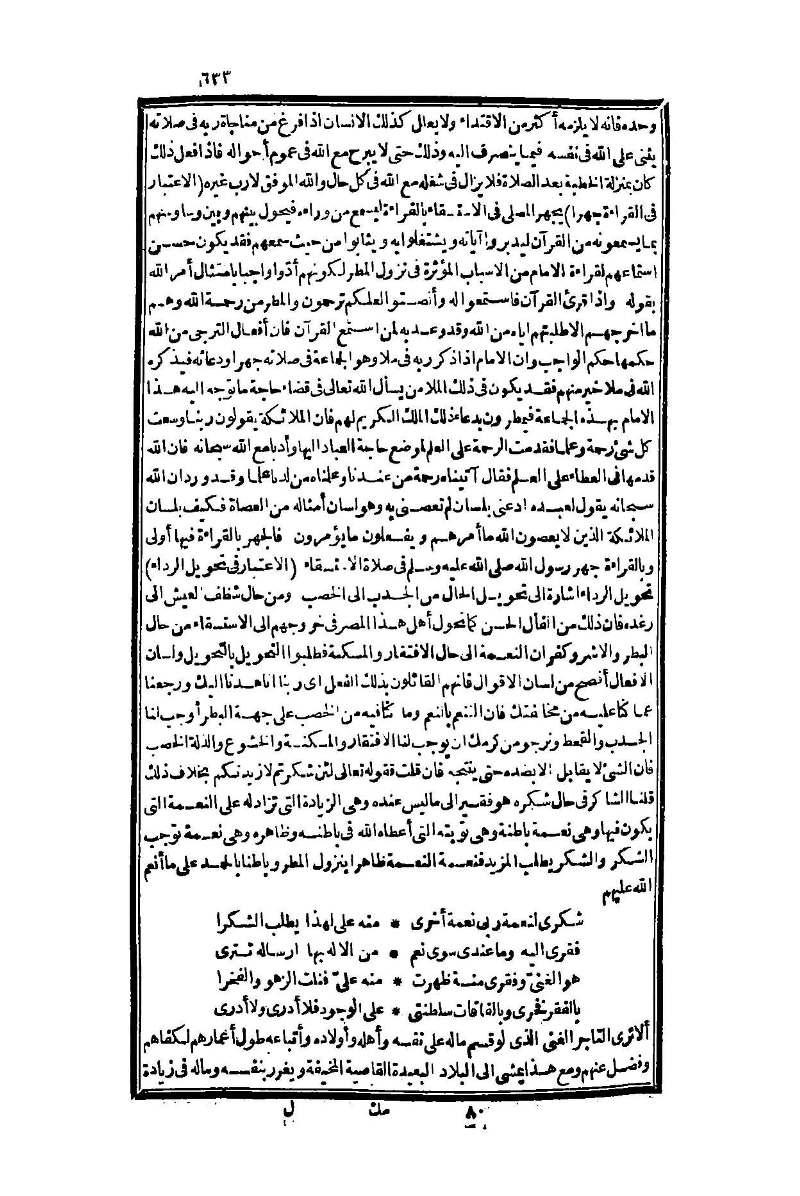 ٦٣٣
وحده فانه لا يلزمه أكثر من الاقتداء ولا يعالى كذلك الانسان اذا فرغ من مناجاة ربه فى صلاته
يثنى على الله فى نفسه فيما ينصرف اليه وذلك حتى لا يبرح مع الله فى عموم أحواله فاذا فعل ذلك
كان بمنزلة الخطبة بعد الصلاة فلا يزال فى شغله مع الله فى كل حال والله الموفق لا رب غيره (الاعتبار
فى القراءة جهرا) يجهر المصلى فى الاستسقاء بالقراءة ليسمع من وراءه فيحول بينهم وبين وساوسهم
بما يسمعونه من القرآن ليدبروا آياته ويشتغلوا به ويثابوا من حيث سمعهم فقد يكون حسن
استماعهم لقراءة الامام من الاسباب المؤثرة فى نزول المطر لكونهم أدّوا واجبا بامتثال أمر الله
بقوله واذا قرئ القرآن فاستمعوا له وأنصتوا لعلكم ترحمون والمطر من رحمة الله وهم
ما اخرجهم الا طلبتهم اياه من الله وقد وعد به لمن استمع القرآن فان أفعال الترجى من الله
حكمها حكم الواجب وان الامام اذا ذكر ربه فى ملا وهو الجماعة فى صلاته جهرا ودعائه فيذكره
الله فى ملا خير منهم فقد يكون فى ذلك الملا من يسأل الله تعالى فى قضاء حاجة ما توجه اليه هذا
الامام بهذه الجماعة فيمطرون بدعاء ذلك الملك الكريم لهم فان الملائكة يقولون ربنا وسعت
كل شئ رحمة وعلما فقدمت الرحمة على العلم لموضع حاجة العباد اليها وأدبا مع الله سبحانه فان الله
قدمها فى العطاء على العلم فقال آتيناه رحمة من عندنا وعلمناه من لدنا علما وقد ورد ان الله
سبحانه يقول لعبده ادعنى بلسان لم تعصنى به وهو لسان أمثاله من العصاة فكيف بلسان
الملائكة الذين لا يعصون الله ما أمرهم ويفعلون ما يؤمرون فالجهر بالقراءة فيها أولى
وبالقراءة جهر رسول الله صلى الله عليه وسلم فى صلاة الاستسقاء (الاعتبار فى تحويل الرداء)
تحويل الرداء اشارة الى تحويل الحال من الجدب الى الخصب ومن حال شظف العيش الى
رغده فان ذلك من الفأل الحسن كما تحول أهل هذا المصر فى خروجهم الى الاستسقاء من حال
البطر والاشر وكفران النعمة الى حال الافتقار والمسكنة فطلبوا التحويل بالتحويل ولسان
الافعال أفصح من لسان الاقوال فانهم القائلون بذلك الفعل اى ربنا انا هدنا اليك ورجعنا
عما كنا عليه من مخالفتك فان التنعم بالنعم وما كنا فيه من الخصب على جهة البطر أوجب لنا
الجدب والقحط ونرجو من كرمك ان يوجب لنا الافتقار والمسكنة والخشوع والذلة الخصب
فان الشئ لا يقابل الا بضده حتى ينتجه فان قلت فقوله تعالى لئن شكرتم لازيدنكم بخلاف ذلك
قلنا الشاكر فى حال شكره هو فقير الى ما ليس عنده وهى الزيادة التى تزاد له على النعمة التى
يكون فيها وهى نعمة باطنة وهى توبته التى أعطاه الله فى باطنه وظاهره وهى نعمة توجب
الشكر والشكر يطلب المزيد فنعمة النعمة ظاهرا بنزول المطر وباطنا بالحمد على ما أنعم
الله عليهم
شكرى لنعمة ربى نعمة أخرى * منه على لهذا يطلب الشكرا
فقرى اليه وما عندى سوى نعم * من الاله بها ارساله تترى
هو الغنىّ وفقرى منة ظهرت * منه علىّ فنلت الزهو والفخرا
بالفقر فخرى وبالفاقات سلطنتى * على الوجود فلا أدرى ولا أدرى
ألا ترى التاجر الغنى الذى لو قسم ماله على نفسه وأهله وأولاده وأتباعه طول أعمارهم لكفاهم
وفضل عنهم ومع هذا يمشى الى البلاد البعيدة القاصية المخيفة ويغرر بنفسه وماله فى زيادة
٨٠ مك ل